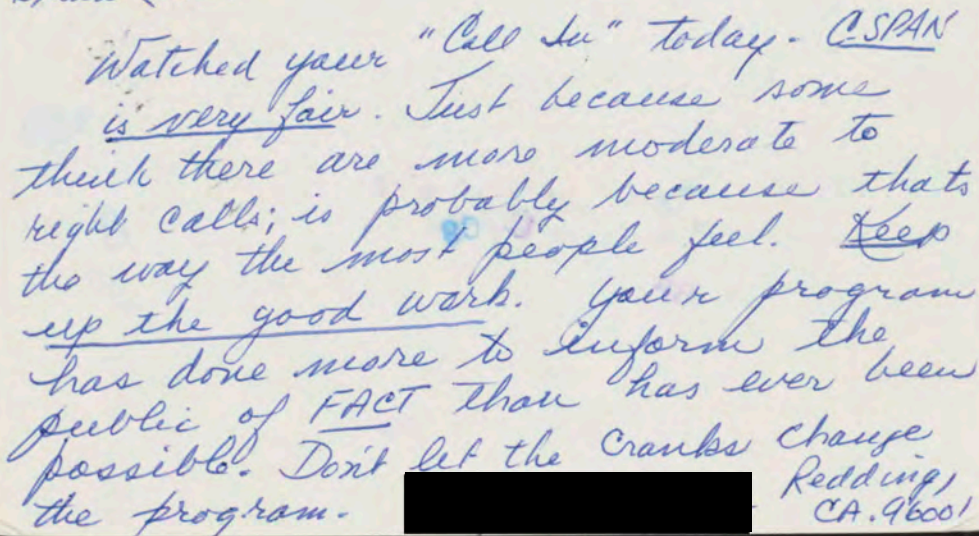 Watched your "Call In" today - C-SPAN
is very fair. Just because some
think there are more moderate to
right calls; is probably because thats
the way the most people feel. Keep
up the good work. Your program
has done more to inform the
public of FACT than has ever been
possible. Don't let the Cranks change
the program.
Redding,
CA. 96001